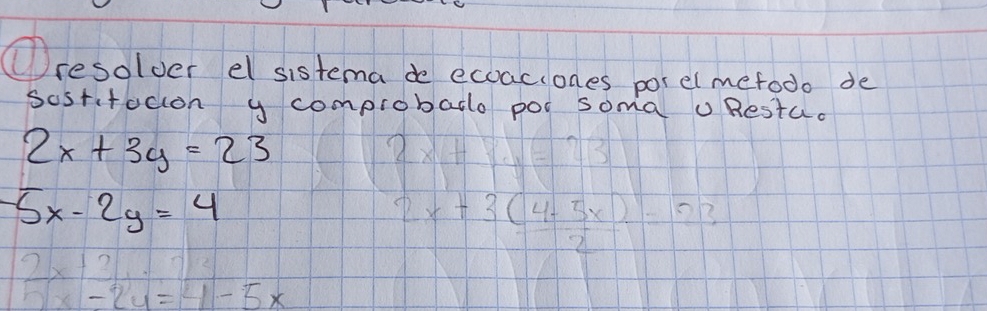 ① resolver el sistema de ecuaciones por el metodo de
sustitucion y comprobarlo por soma u Resta.
2x + 3y = 23
2x + 3y = 23
5x - 2y = 4
2x + 3(4-5x) = 23
2
2x + 3y = 23
5x - 2y = 4 - 5x